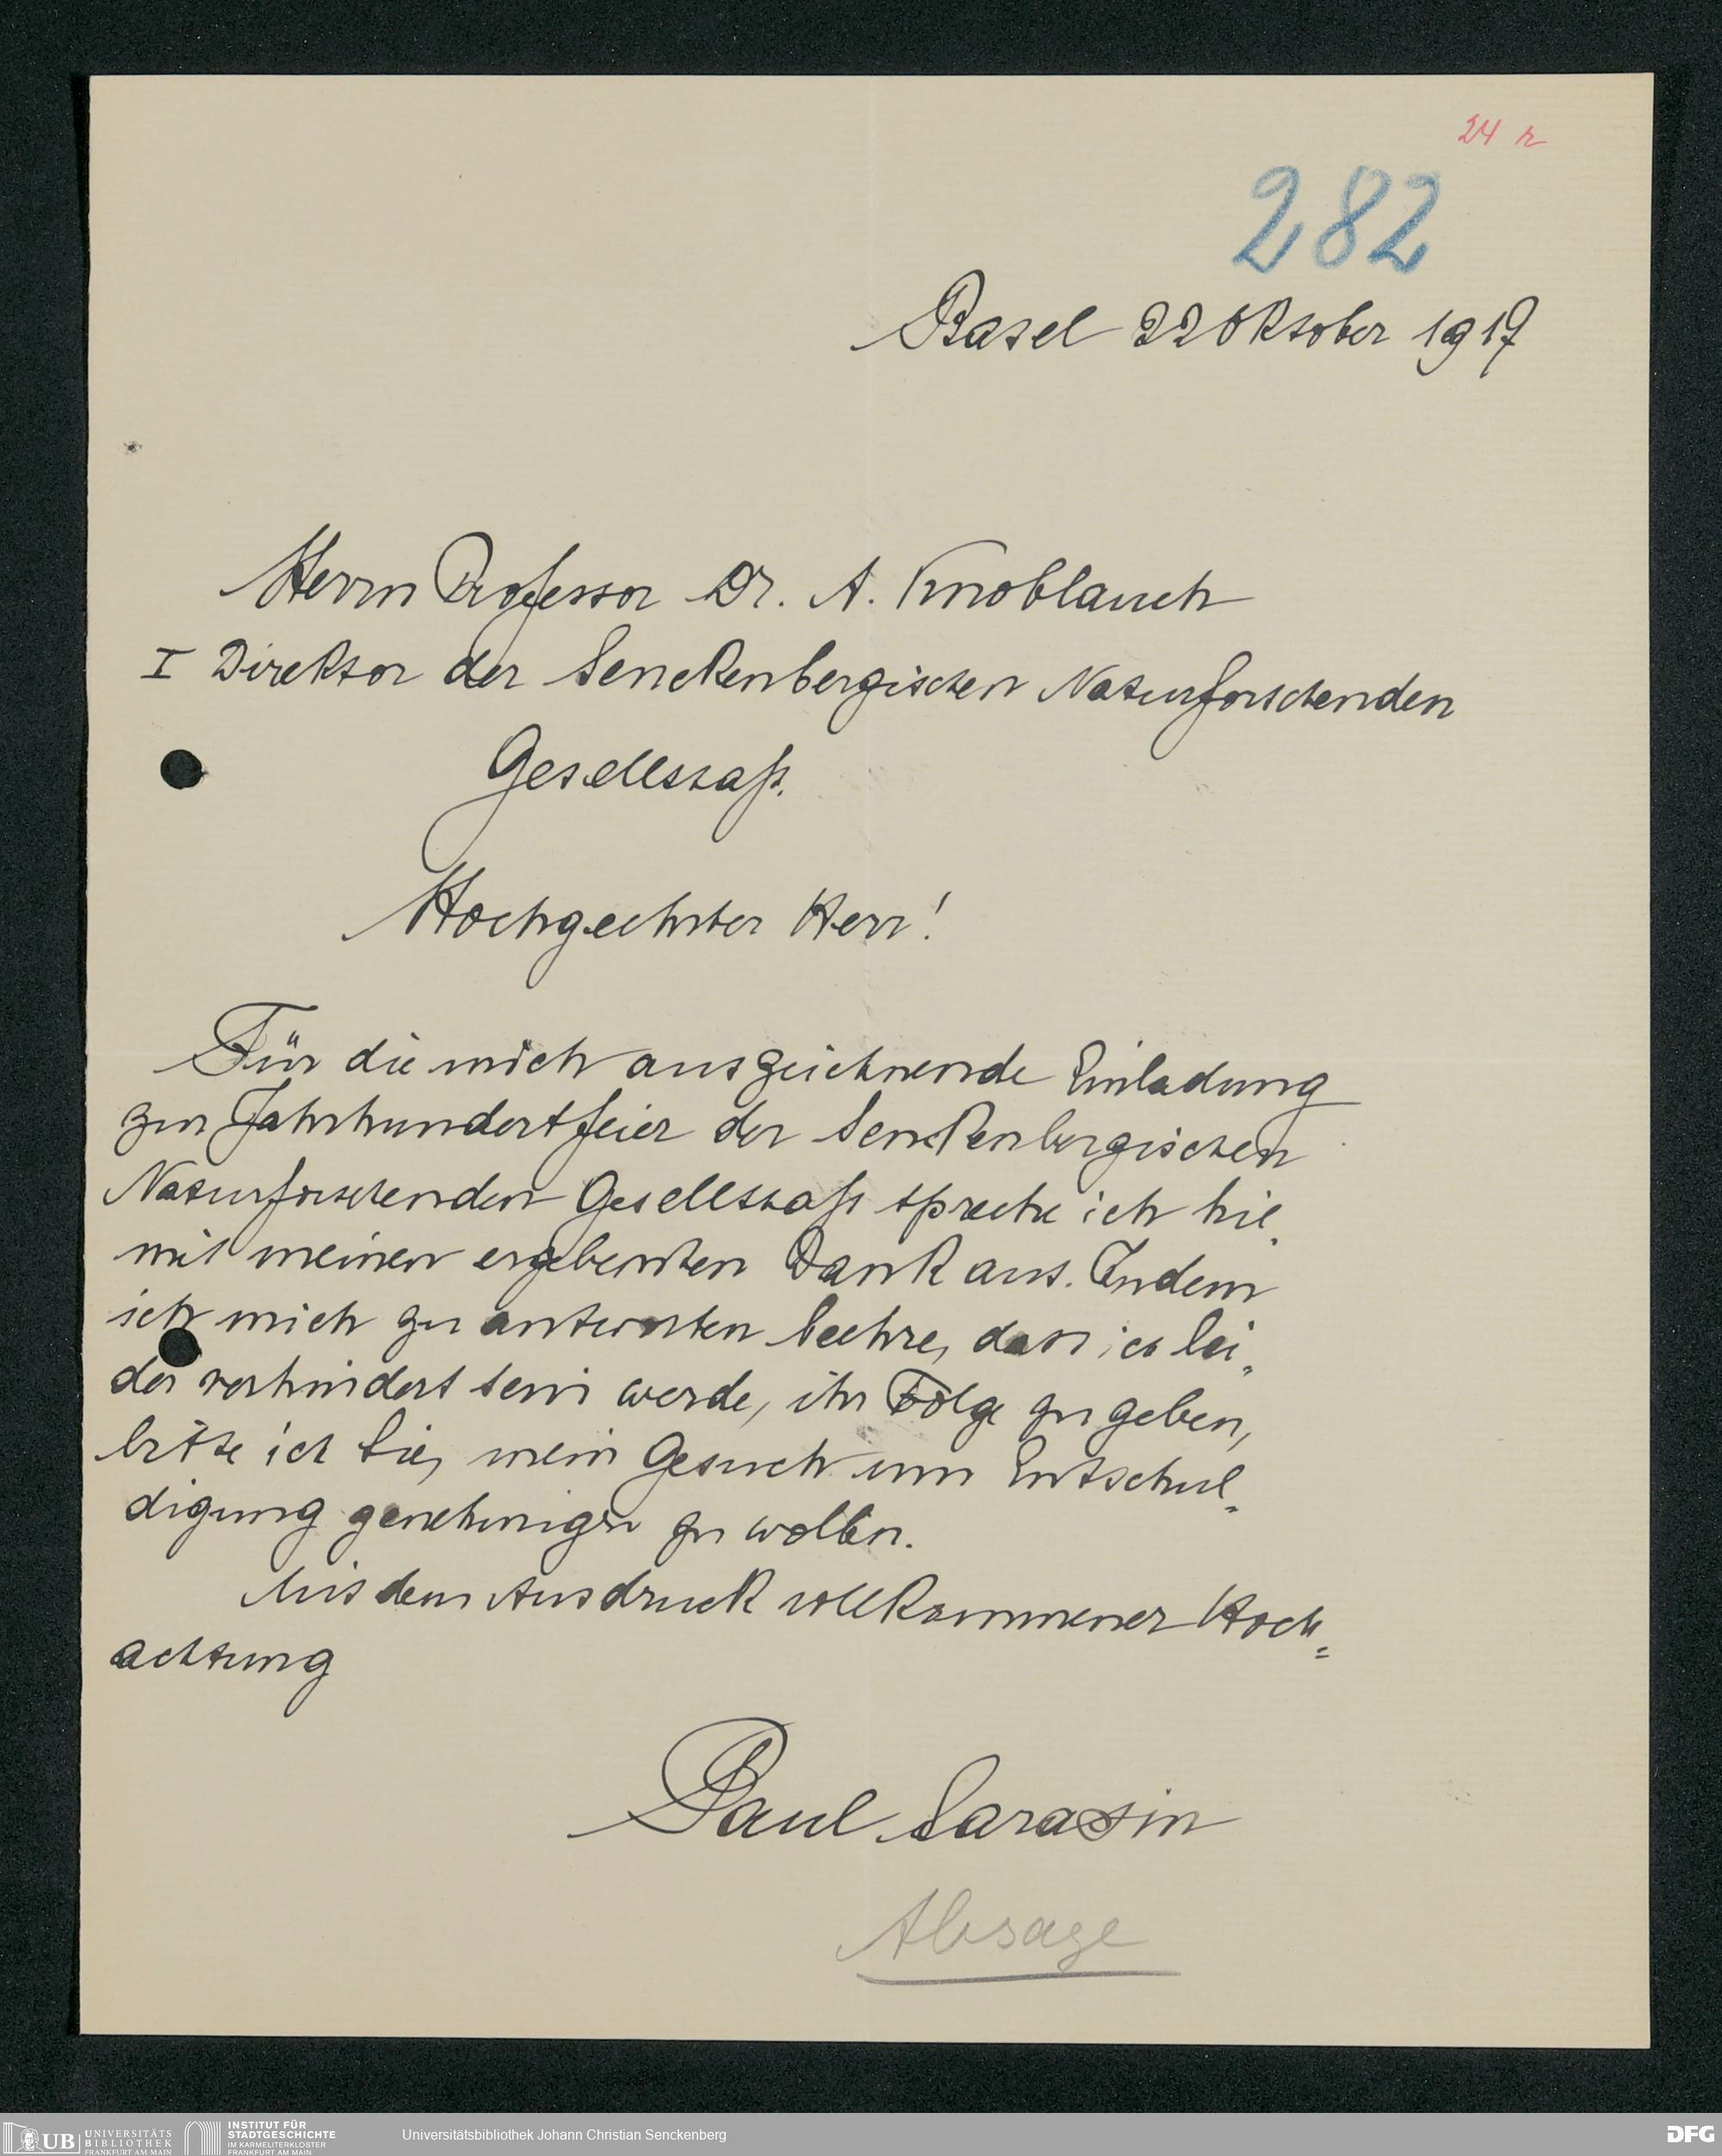 24 r
282
Basel 22 Oktober 1917
Herrn Professor Dr. A. Knoblauch
I Direktor der Senckenbergischen Naturforschenden
Gesellschaft.
Hochgeehrter Herr!
Für die mich auszeichnende Einladung
zur Jahrhundertfeier der Senckenbergischen
Naturforschenden Gesellschaft spreche ich hie-
mit meinen ergebensten Dank aus. Indem
ich mich zu antworten beehre, dass ich lei-
der verhindert sein werde, ihr Folge zu geben,
bitte ich Sie, mein Gesuch um Entschul-
digung genehmigen zu wollen.
Mit dem Ausdruck vollkommener Hoch=
achtung
Paul Sarasin
Absage
UB UNIVERSITÄTS
BIBLIOTHEK
FRANKFURT AM MAIN
INSTITUT FÜR
STADTGESCHICHTE
IM KARMELITERKLOSTER
FRANKFURT AM MAIN
Universitätsbibliothek Johann Christian Senckenberg
DFG